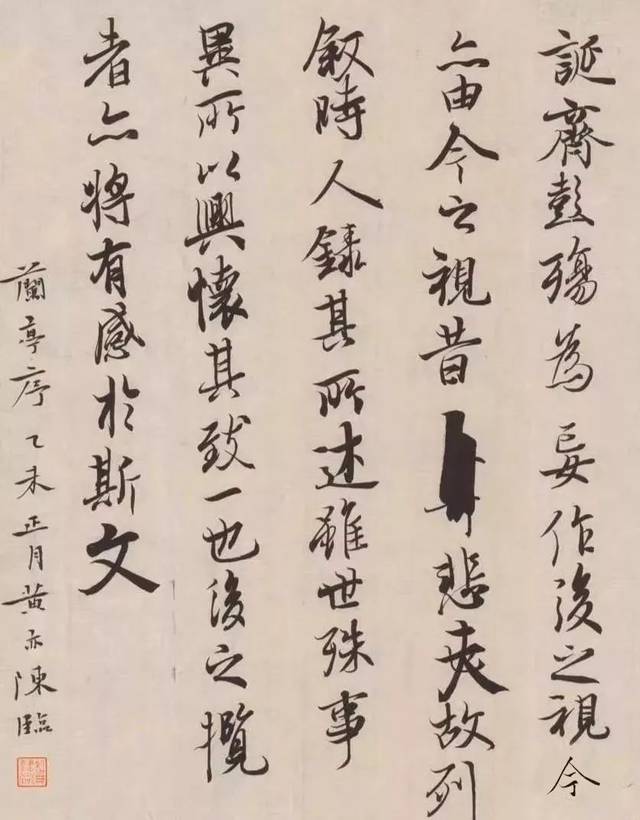 誕齊彭殤為妄作後之視今
亦由今之視昔悲夫故列
叙時人錄其所述雖世殊事
異所以興懷其致一也後之攬
者亦將有感於斯文
蘭亭序乙未正月黃亦陳臨